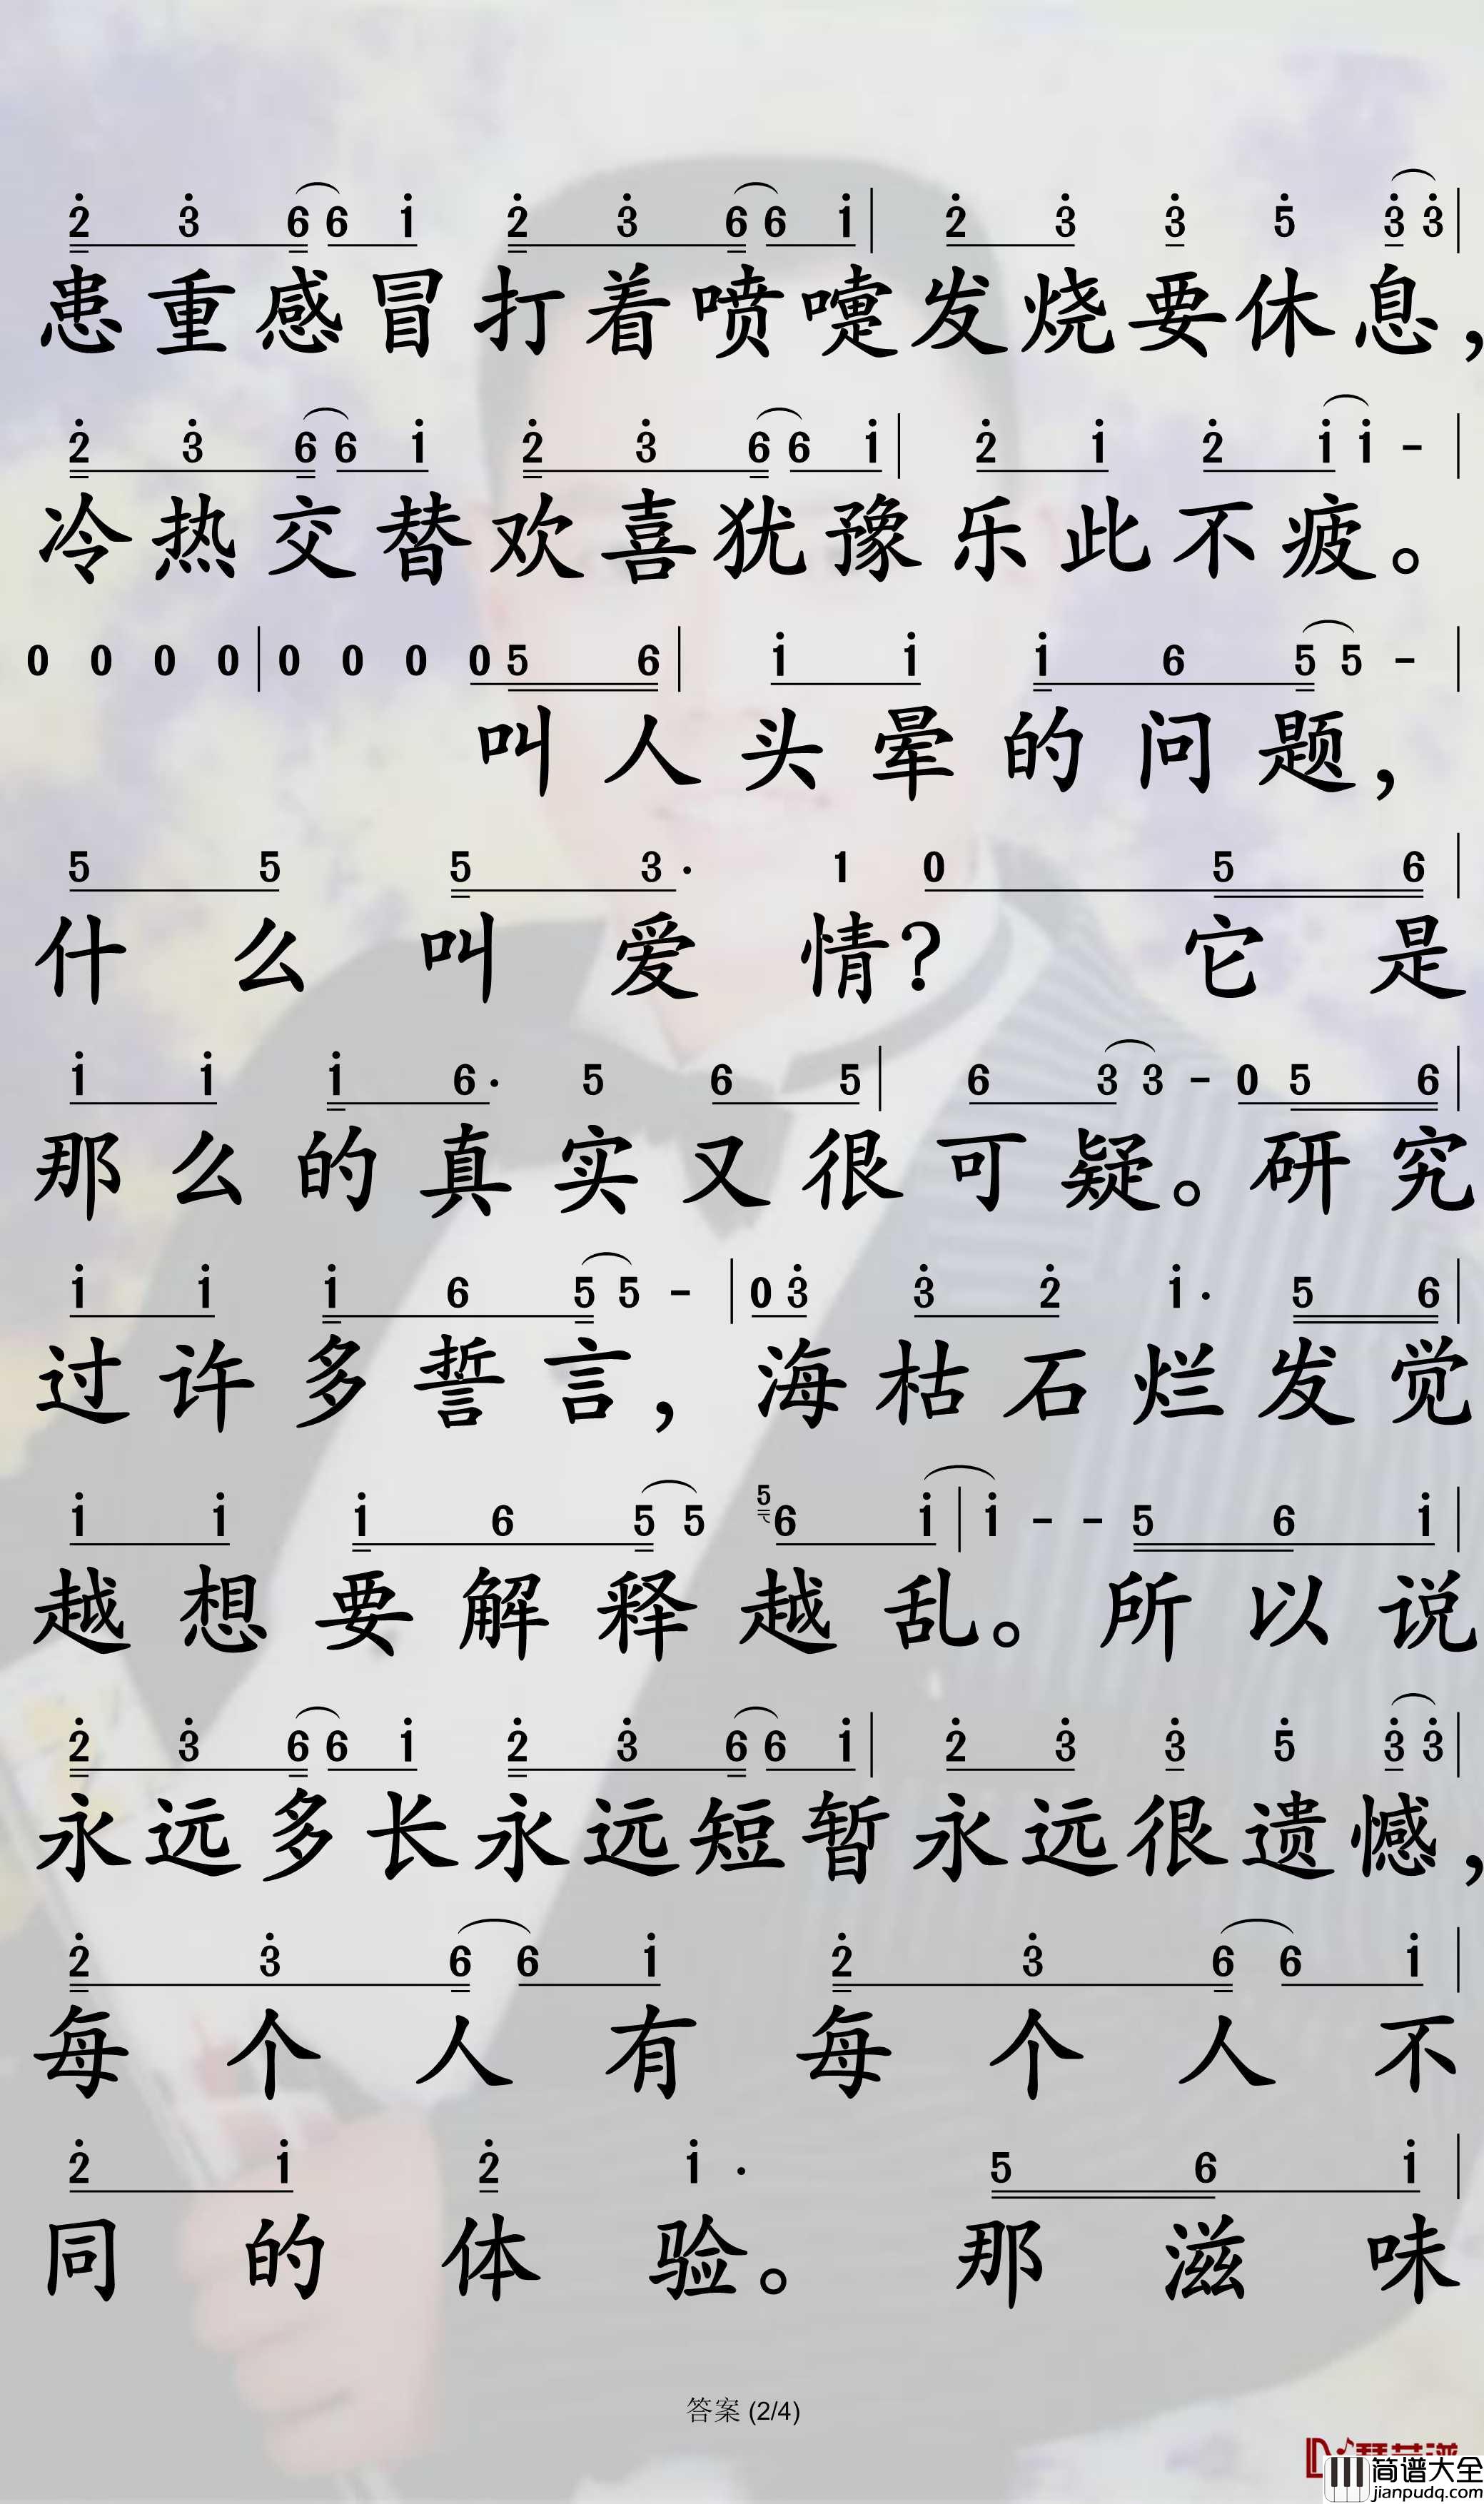 2̇ 3̇ 6 6 1̇ 2̇ 3̇ 6 6 1̇ | 2̇ 3̇ 3̇ 5̇ 3̇ 3̇ |
患重感冒打着喷嚏发烧要休息，
2̇ 3̇ 6 6 1̇ 2̇ 3̇ 6 6 1̇ | 2̇ 1̇ 2̇ 1̇ 1̇ - |
冷热交替欢喜犹豫乐此不疲。
0 0 0 0 | 0 0 0 0 5 6 | 1̇ 1̇ 1̇ 6 5 5 - |
叫人头晕的问题，
5 5 5 3· 1 0 5 6 |
什么叫爱情？它是
1̇ 1̇ 1̇ 6· 5 6 5 | 6 3 3 - 0 5 6 |
那么的真实又很可疑。研究
1̇ 1̇ 1̇ 6 5 5 - | 0 3̇ 3̇ 2̇ 1̇· 5 6 |
过许多誓言，海枯石烂发觉
1̇ 1̇ 1̇ 6 5 5 5 6 1̇ | 1̇ - - 5 6 1̇ |
越想要解释越乱。所以说
2̇ 3̇ 6 6 1̇ 2̇ 3̇ 6 6 1̇ | 2̇ 3̇ 3̇ 5̇ 3̇ 3̇ |
永远多长永远短暂永远很遗憾，
2̇ 3̇ 6 6 1̇ 2̇ 3̇ 6 6 1̇ |
每个人有每个人不
2̇ 1̇ 2̇ 1̇· 5 6 1̇ |
同的体验。那滋味
答案 (2/4)
简谱大全
jianpudq.com